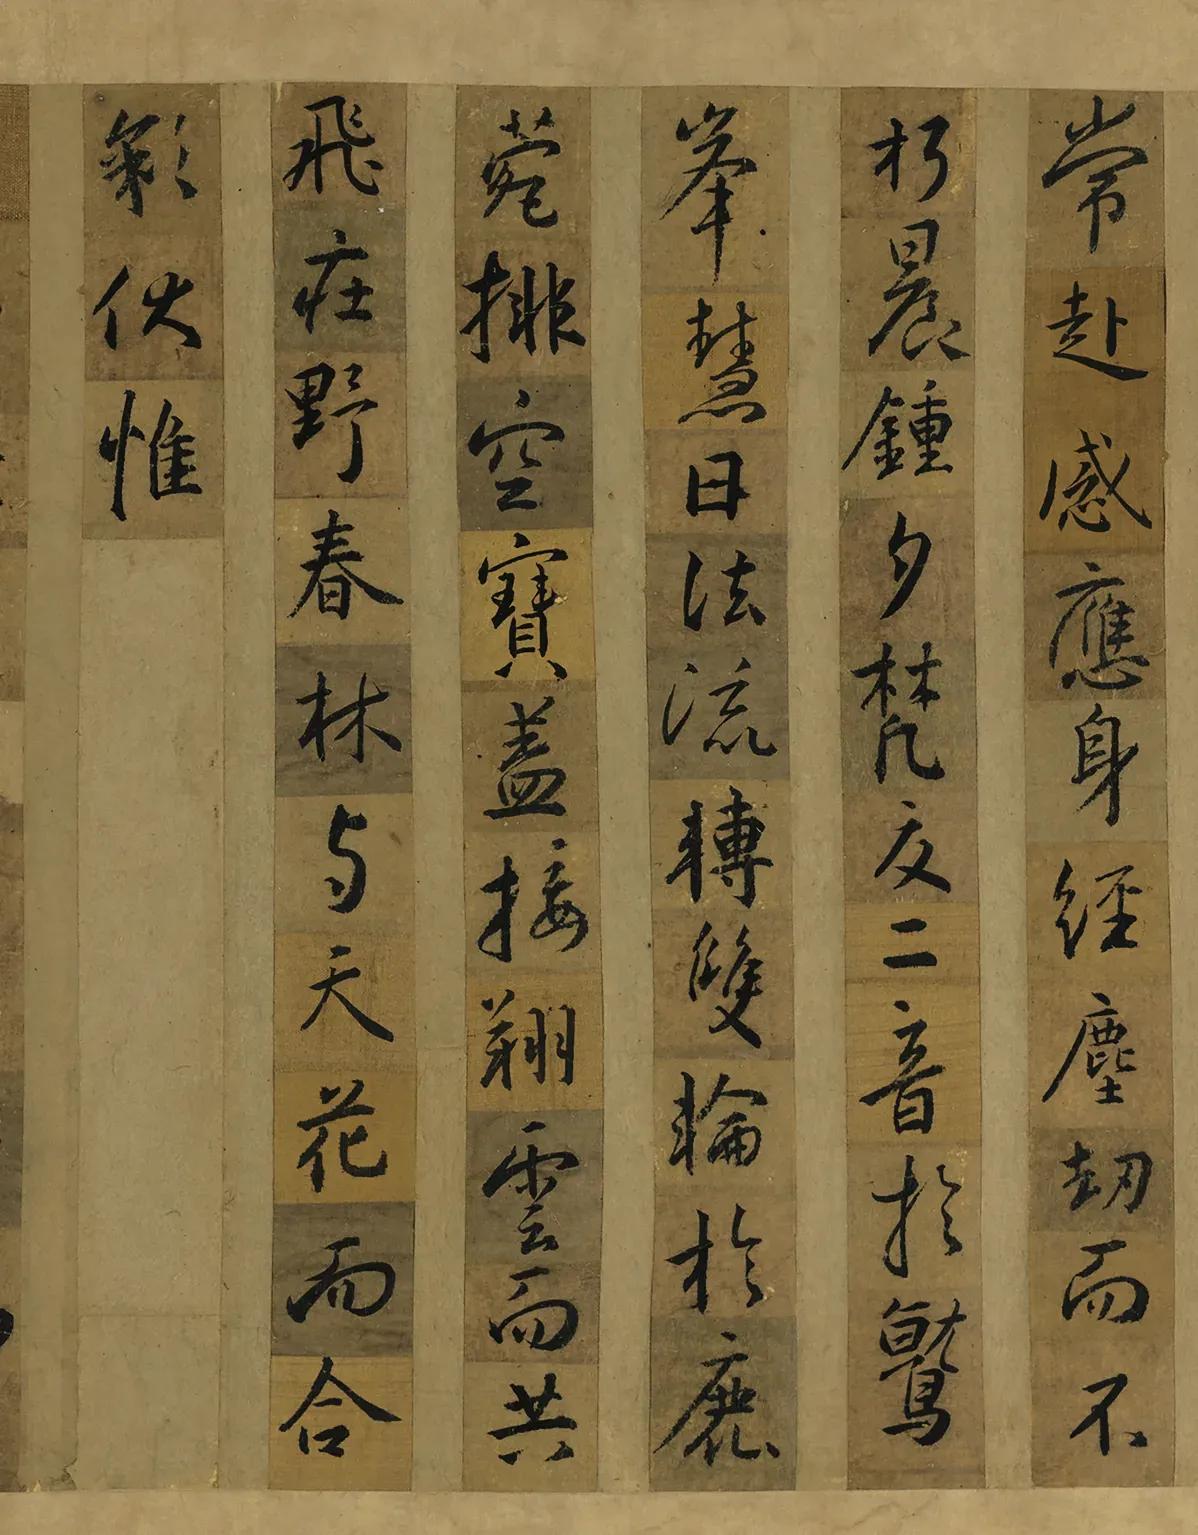 常赴感應身經塵劫而不
朽晨鍾夕梵交二音於鷲
峯慧日法流轉雙輪於鹿
菀排空寶蓋接翔雲而共
飛莊野春林与天花而合
彩伏惟